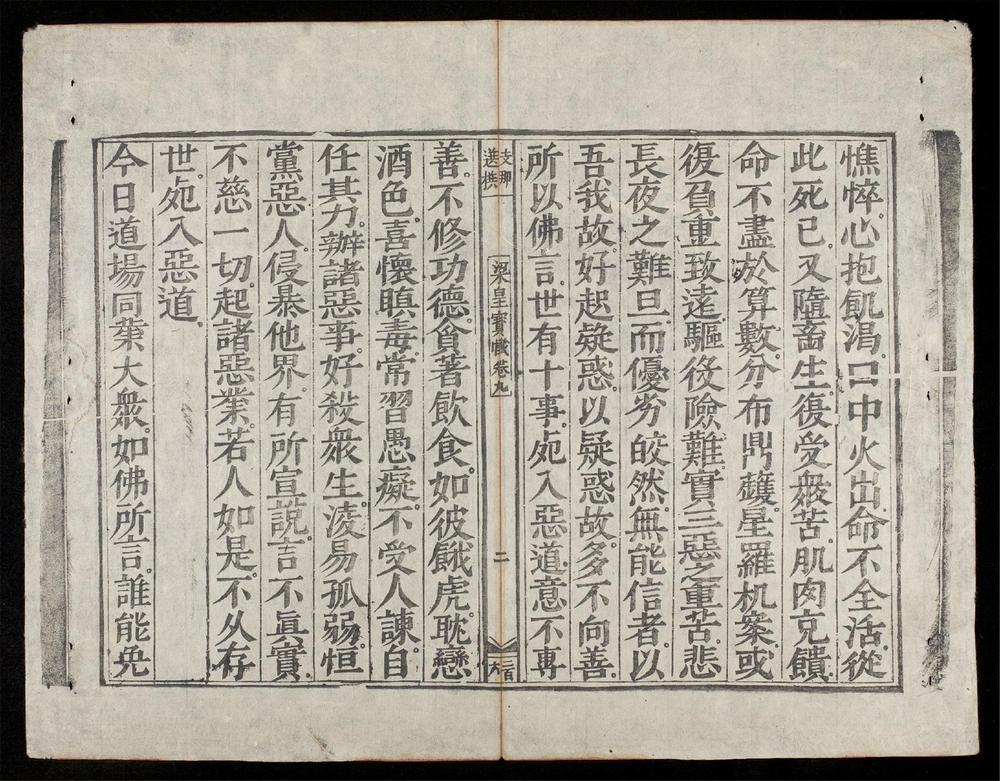 憔悴。心抱飢渴。口中火出。命不全活。從
此死已。又隨畜生。復受眾苦。肌肉充饋。
命不盡於算數。分布鼎鑊。星羅机案。或
復負重致遠。驅役險難。實三惡之重苦。悲
長夜之難旦。而優劣皎然。無能信者。以
吾我故。好起疑惑。以疑惑故。多不向善。
所以佛言。世有十事。死入惡道。意不專
支那
選撰
梁皇寶懺卷九
二
善。不修功德。貪著飲食。如彼餓虎。耽戀
酒色。喜懷瞋毒。常習愚癡。不受人諫。自
任其力。辦諸惡事。好殺眾生。淩易孤弱。恒
黨惡人。侵暴他界。有所宣說。言不真實。
不慈一切。起諸惡業。若人如是。不久存
世。死入惡道。
今日道場同業大眾。如佛所言。誰能免